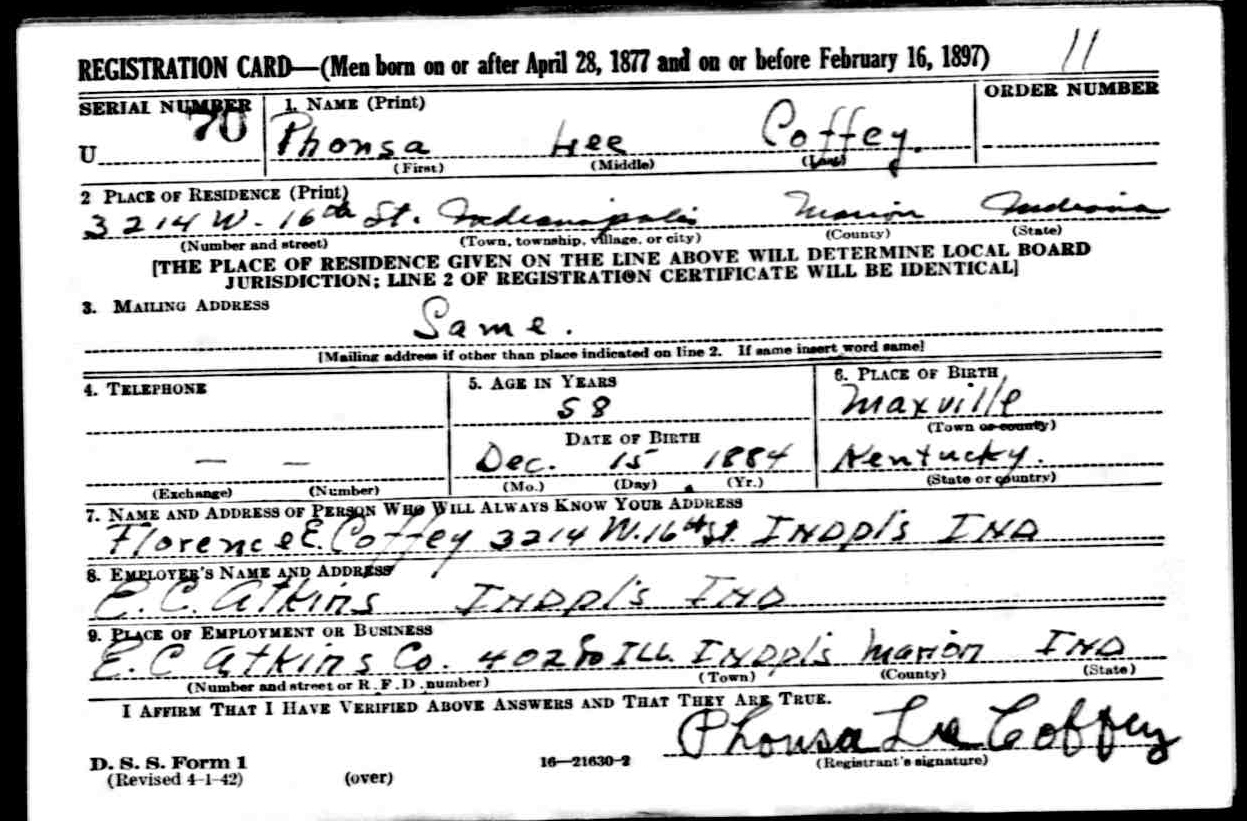 REGISTRATION CARD—(Men born on or after April 28, 1877 and on or before February 16, 1897) 11
SERIAL NUMBER 1. NAME (Print) ORDER NUMBER
U 70 Phonsa Lee Coffey.
(First) (Middle) (Last)
2 PLACE OF RESIDENCE (Print)
3214 W. 16th St. Indianapolis Marion Indiana
(Number and street) (Town, township, village, or city) (County) (State)
[THE PLACE OF RESIDENCE GIVEN ON THE LINE ABOVE WILL DETERMINE LOCAL BOARD
JURISDICTION; LINE 2 OF REGISTRATION CERTIFICATE WILL BE IDENTICAL]
3. MAILING ADDRESS
Same.
[Mailing address if other than place indicated on line 2. If same insert word same]
4. TELEPHONE 5. AGE IN YEARS 6. PLACE OF BIRTH
58 Maxville
(Town or county)
DATE OF BIRTH
— — Dec. 15 1884 Kentucky.
(Exchange) (Number) (Mo.) (Day) (Yr.) (State or country)
7. NAME AND ADDRESS OF PERSON WHO WILL ALWAYS KNOW YOUR ADDRESS
Florence E. Coffey 3214 W. 16th St. INDpl's IND
8. EMPLOYER'S NAME AND ADDRESS
E. C. Atkins INDpl's IND
9. PLACE OF EMPLOYMENT OR BUSINESS
E. C Atkins Co. 402 So ILL. INDpl's Marion IND
(Number and street or R. F. D. number) (Town) (County) (State)
I AFFIRM THAT I HAVE VERIFIED ABOVE ANSWERS AND THAT THEY ARE TRUE.
Phonsa Lee Coffey
D. S. S. Form 1 16—21630-2 (Registrant's signature)
(Revised 4-1-42) (over)